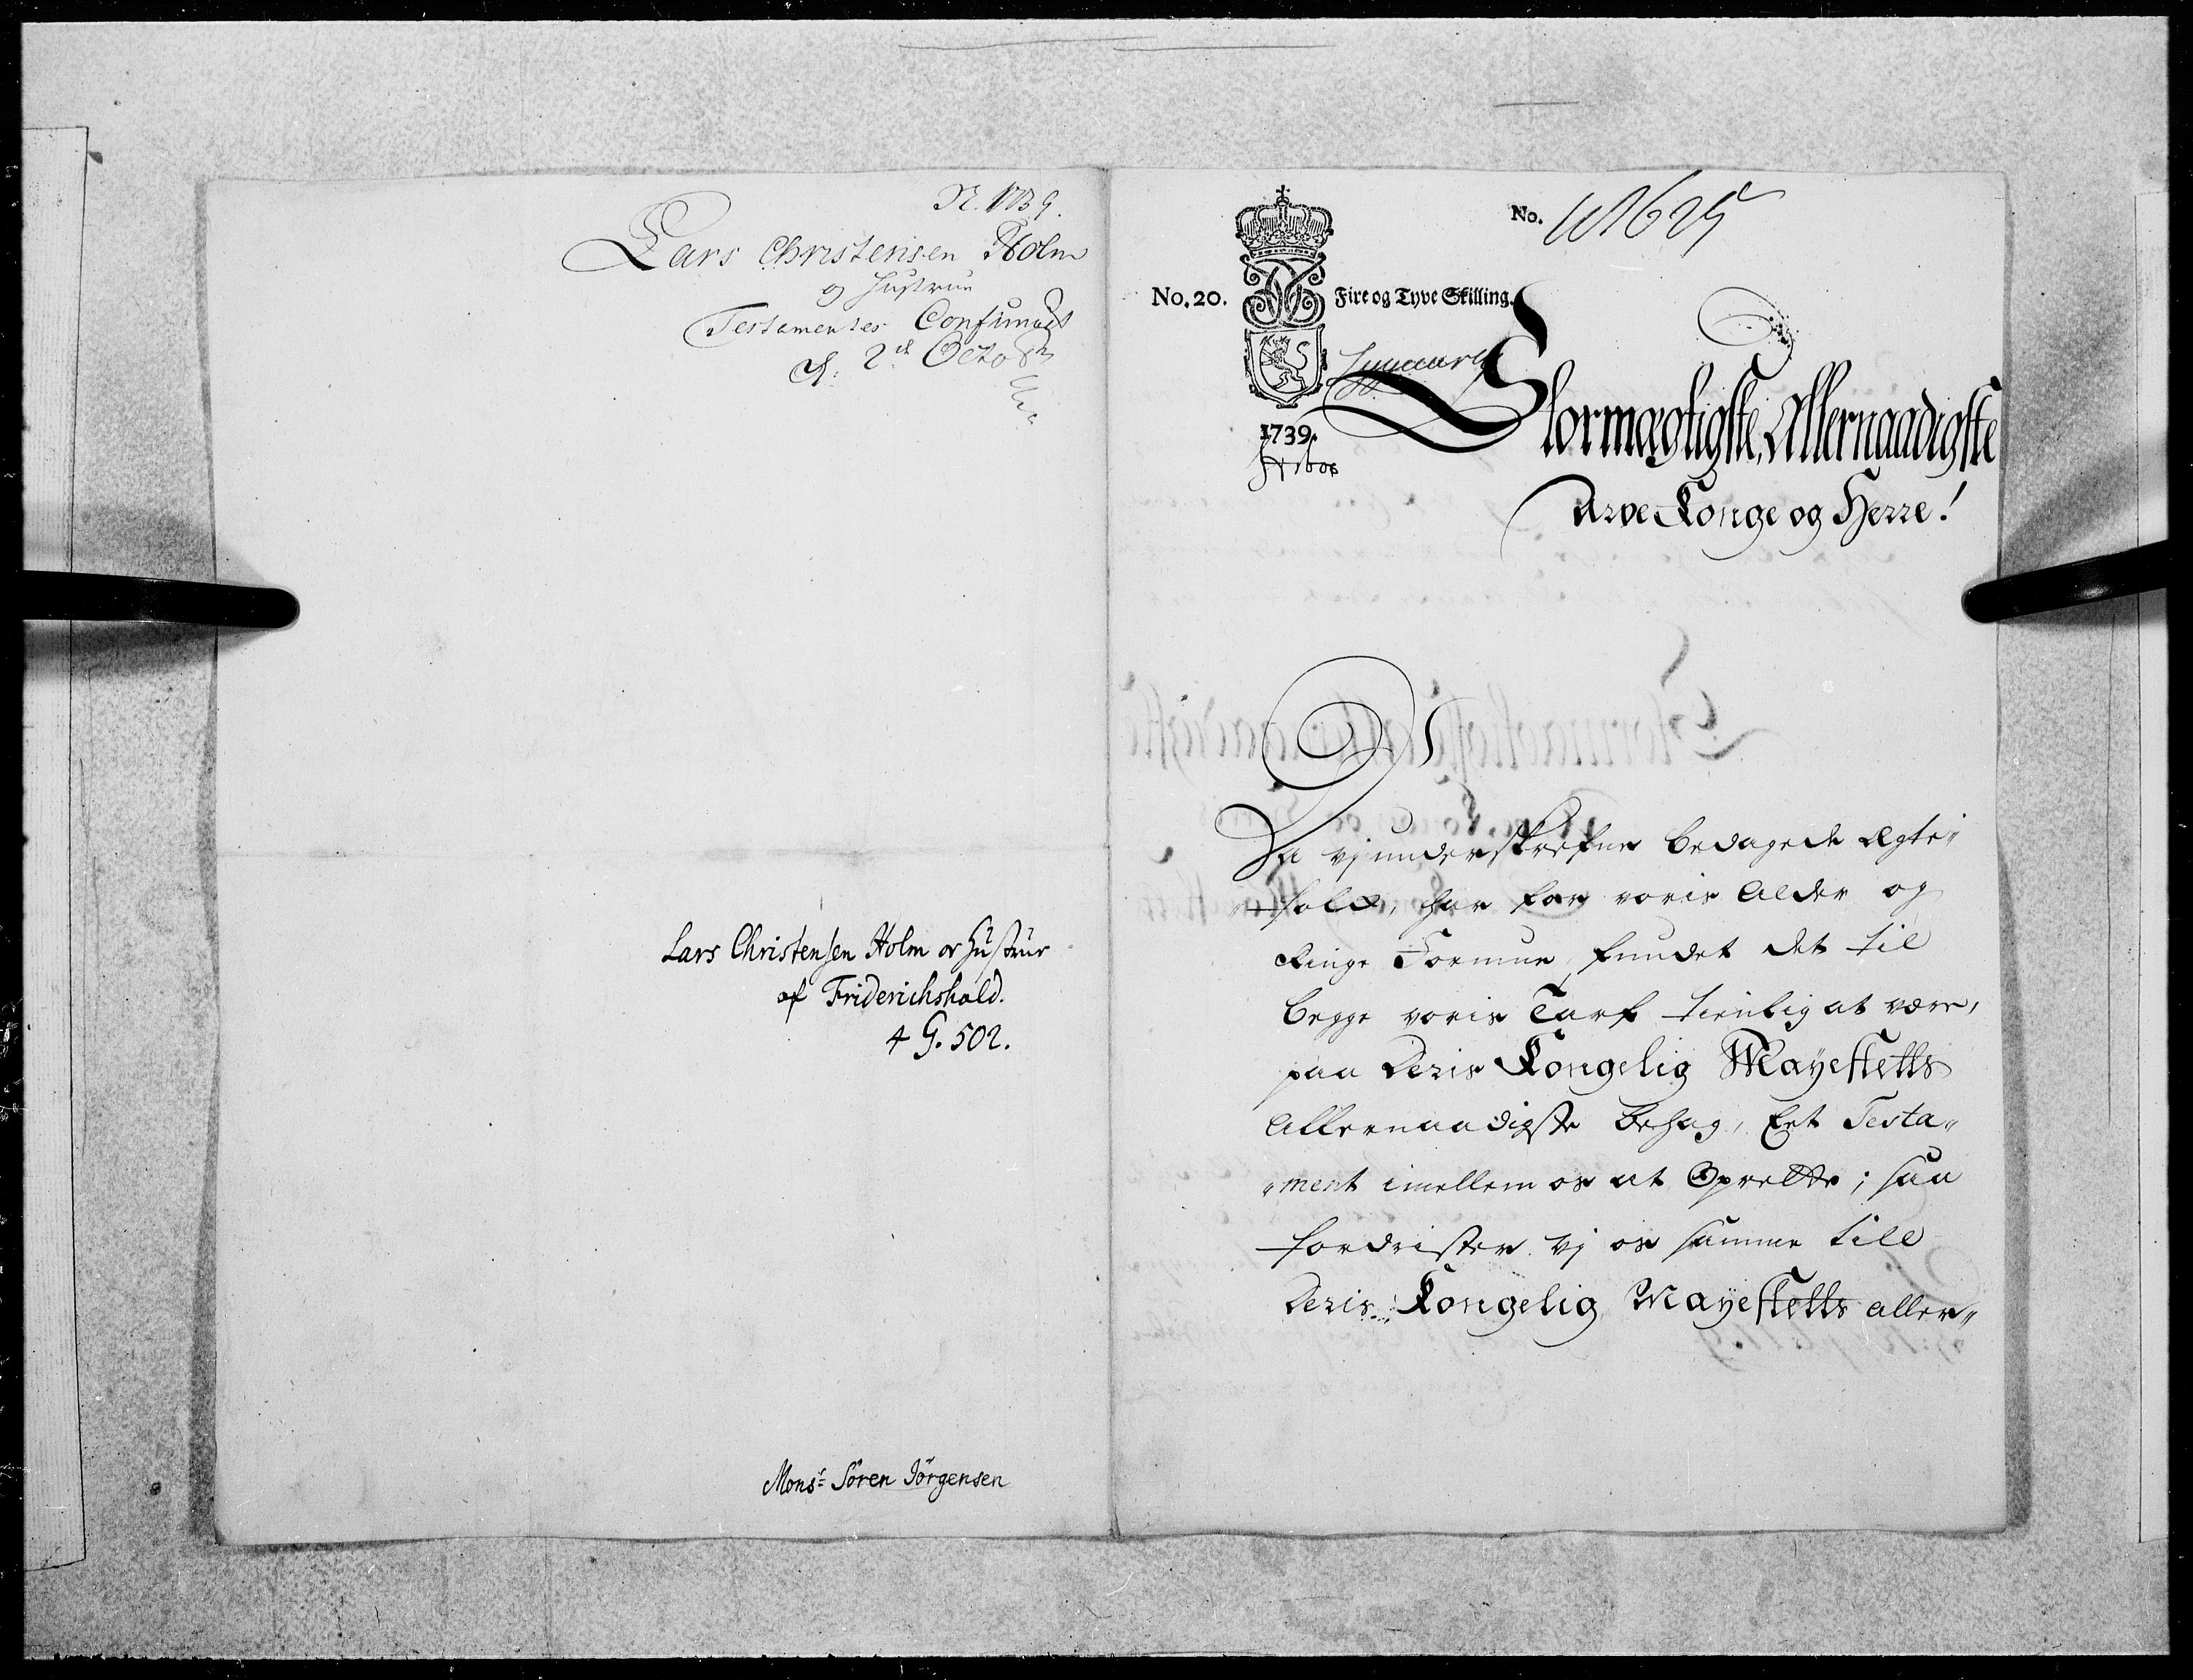 N. 1739.
Lars Christensen Holm
og Hustrue
Testamentes Confirmat
d. 2d Octobr
Lars Christensen Holm og Hustrue
af Friderichshald.
4 G. 502.
Monsr. Sören Jörgensen
No.
No. 20. Fire og Tyve Skilling.
1739.
Stormægtigste, Allernaadigste
Arve Konge og Herre!
Da vj underskrefne bedagede Ægte„
„folk, har for voris Alder og
Ringe Formue, fundet det til
begge voris Tarf tienlig at være,
paa Deris Kongelig Mayestetts
Allernaadigste behag, Eet Testa„
„ment imellem os at Oprette; saa
fordrister vj os samme till
Deris Kongelig Mayestetts aller„